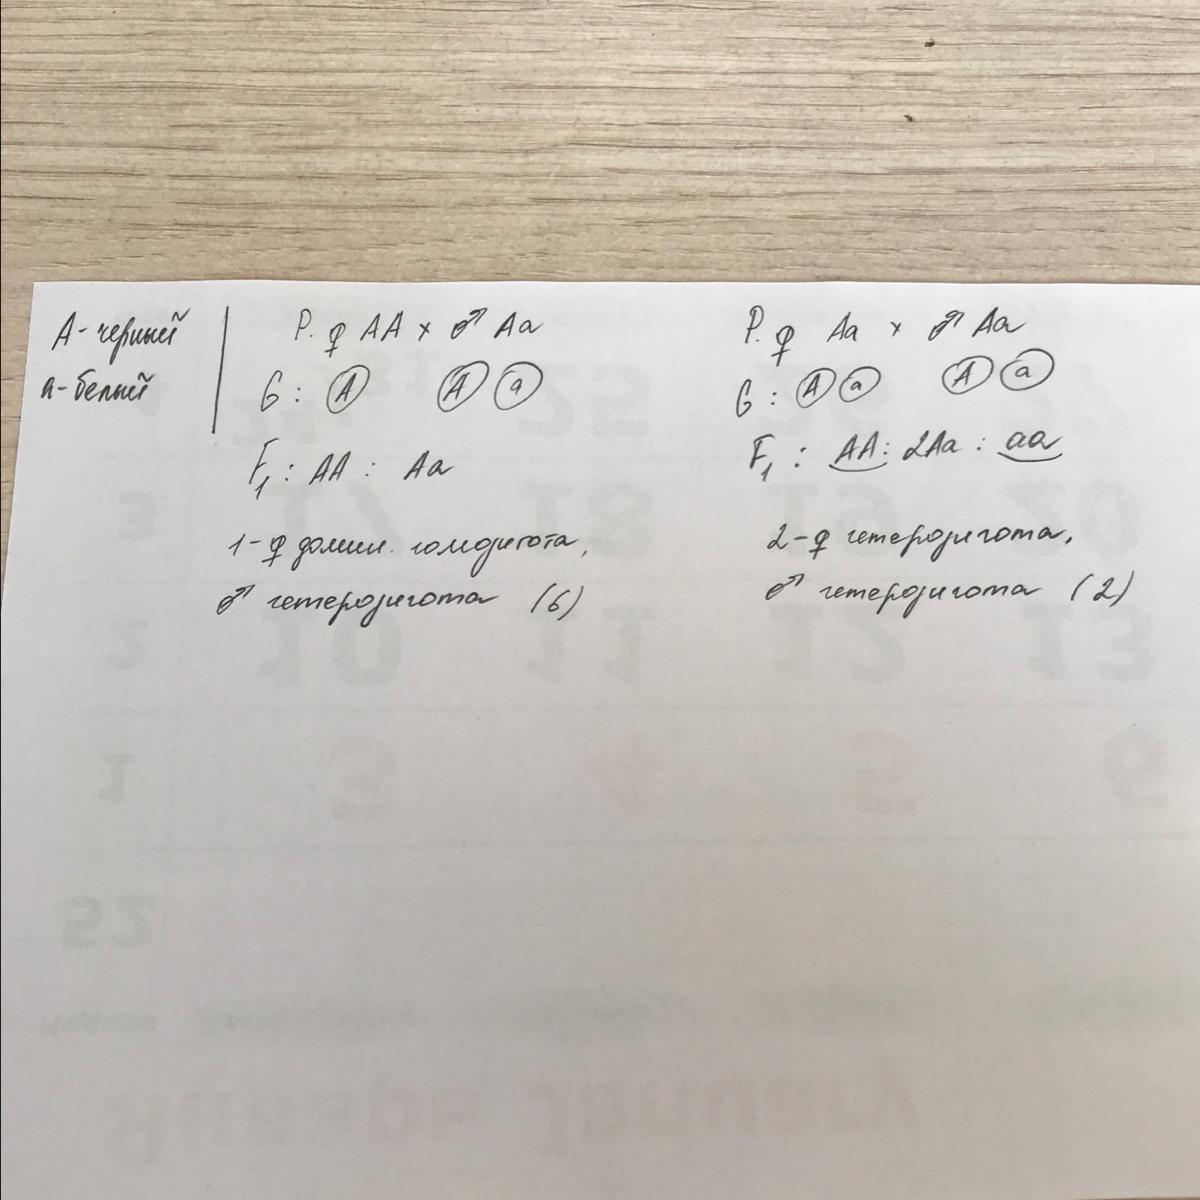 А - черный
а - белый
P. ♀ AA × ♂ Aa
G : A A a
F1 : AA : Aa
1 - ♀ домин. гомозигота,
♂ гетерозигота (6)
P. ♀ Aa × ♂ Aa
G : A a A a
F1 : AA : 2Aa : aa
2 - ♀ гетерозигота,
♂ гетерозигота (2)